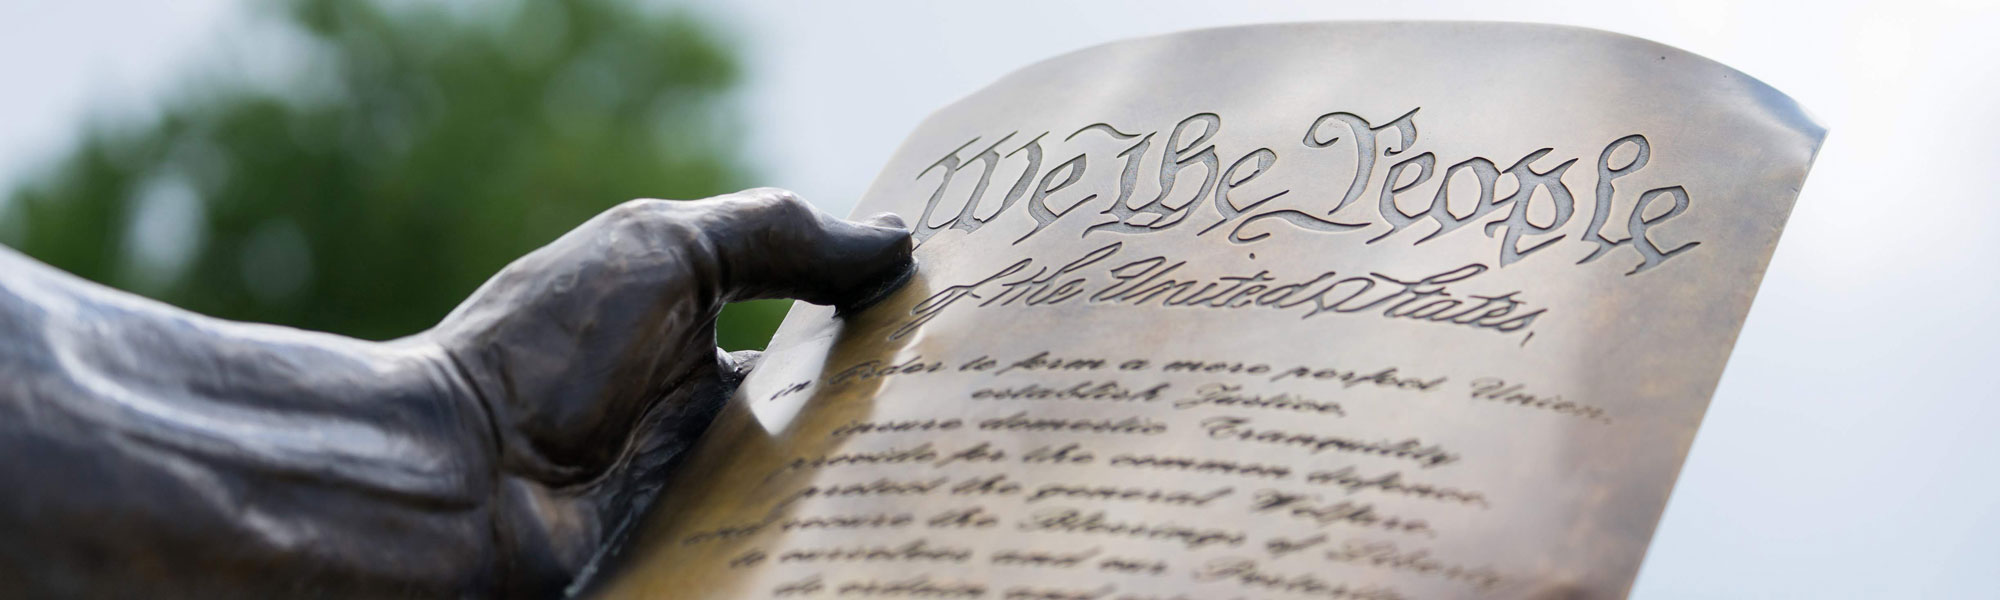 We the People
of the United States,
in Order to form a more perfect Union,
establish Justice,
insure domestic Tranquility
provide for the common defence,
protect the general Welfare,
and secure the Blessings of Liberty
to ourselves and our Posterity
do ordain and